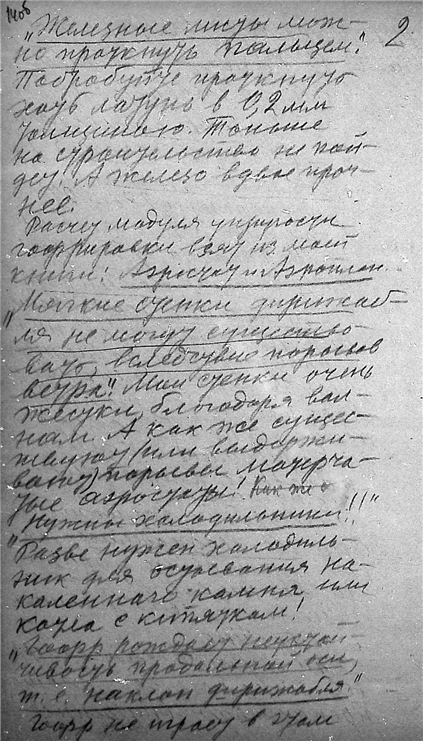 140б
2
„Железные листы мож-
но проткнуть пальцем".
Попробуйте проткнуть
хоть латунь в 0,2 мм
толщиною. Тоньше
на строительство не пой-
дет. А железо вдвое проч-
нее.
Расчет модуля упругости
гоффрировки взят из моей
книги: Аэростат и Аэроплан.
„Мягкие стенки дирижаб-
ля не могут существо-
вать, вследствие порывов
ветра". Мои стенки очень
жестки, благодаря вол-
нам. А как же сущес-
твуют (или выдержи-
вают) порывы матерча-
тые аэростаты! Как же
„Нужны холодильники!!"
Разве нужен холодиль-
ник для остывания на-
каленного камня или
котла с кипятком!
„Гофр рождает неустой-
чивость продольной оси,
т. е. наклон дирижабля."
Гофр не играет в этом